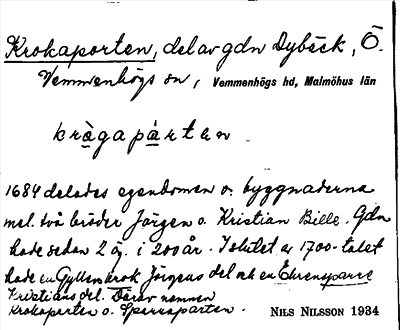 Krokaporten, del av gdn Dybeck, Ö.
Vemmenhögs sn, Vemmenhögs hd, Malmöhus län
krågapårten
1684 delades egendomen o. byggnaderna
mel. två bröder Jörgen o. Kristian Bille. Gdn
hade sedan 2 äg. i 200 år. I slutet av 1700-talet
hade en Gyllenkrok Jörgens del och en Ehrensparre
Kristians del. Därav namnen
Krokaporten o. Sparraporten.
NILS NILSSON 1934